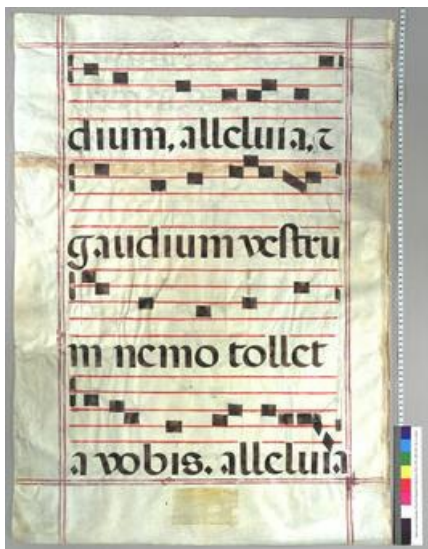 dium, alleluia, ⁊
gaudium vestru
m nemo tollet
a vobis. alleluia